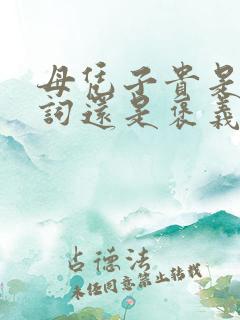 母凭子贵是
詞還是褒義
占德法
未经同意禁止转载